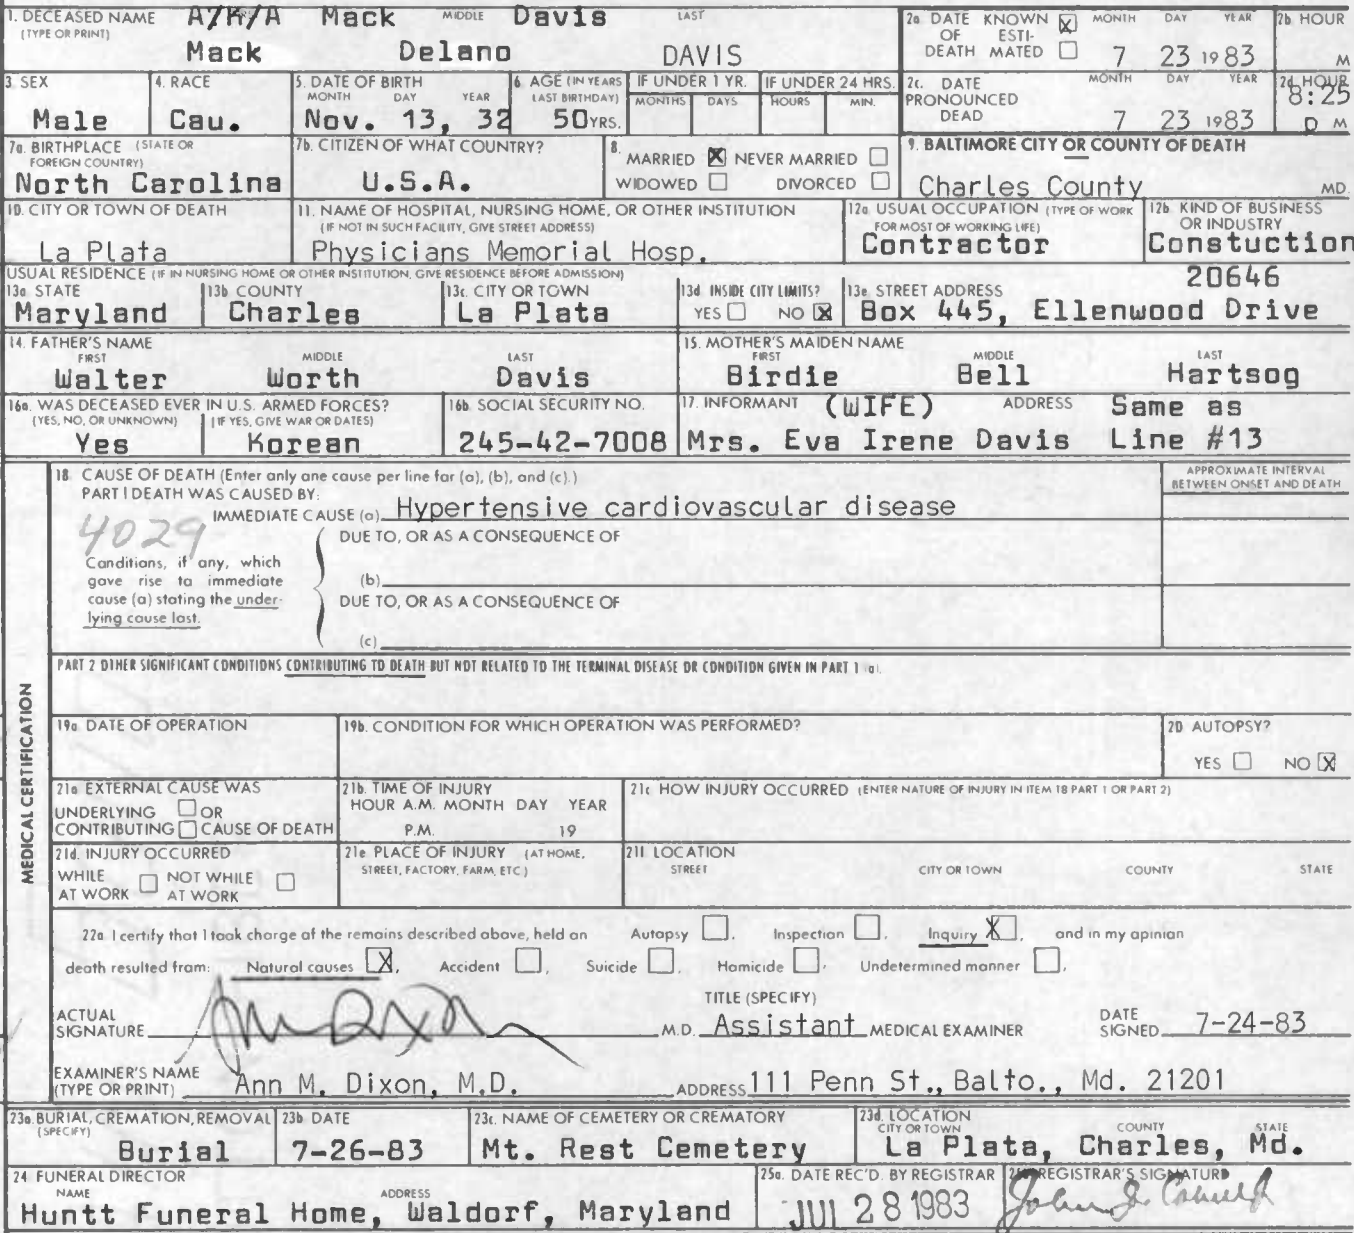 1. DECEASED NAME A/K/A Mack MIDDLE Davis LAST
(TYPE OR PRINT)
Mack Delano DAVIS
2a. DATE KNOWN ☒ MONTH DAY YEAR
OF ESTI-
DEATH MATED ☐ 7 23 1983
2b. HOUR
M
3. SEX
Male
4. RACE
Cau.
5. DATE OF BIRTH
MONTH DAY YEAR
Nov. 13, 32
6. AGE (IN YEARS
LAST BIRTHDAY)
50 YRS.
IF UNDER 1 YR.
MONTHS DAYS
IF UNDER 24 HRS.
HOURS MIN.
2c. DATE MONTH DAY YEAR
PRONOUNCED
DEAD 7 23 1983
2d. HOUR
8:25
M
7a. BIRTHPLACE (STATE OR
FOREIGN COUNTRY)
North Carolina
7b. CITIZEN OF WHAT COUNTRY?
U.S.A.
8.
MARRIED ☒ NEVER MARRIED ☐
WIDOWED ☐ DIVORCED ☐
9. BALTIMORE CITY OR COUNTY OF DEATH
Charles County MD.
10. CITY OR TOWN OF DEATH
La Plata
11. NAME OF HOSPITAL, NURSING HOME, OR OTHER INSTITUTION
(IF NOT IN SUCH FACILITY, GIVE STREET ADDRESS)
Physicians Memorial Hosp.
12a. USUAL OCCUPATION (TYPE OF WORK
FOR MOST OF WORKING LIFE)
Contractor
12b. KIND OF BUSINESS
OR INDUSTRY
Constuction
USUAL RESIDENCE (IF IN NURSING HOME OR OTHER INSTITUTION, GIVE RESIDENCE BEFORE ADMISSION)
13a. STATE
Maryland
13b. COUNTY
Charles
13c. CITY OR TOWN
La Plata
13d. INSIDE CITY LIMITS?
YES ☐ NO ☒
13e. STREET ADDRESS 20646
Box 445, Ellenwood Drive
14. FATHER'S NAME
FIRST MIDDLE LAST
Walter Worth Davis
15. MOTHER'S MAIDEN NAME
FIRST MIDDLE LAST
Birdie Bell Hartsog
16a. WAS DECEASED EVER IN U.S. ARMED FORCES?
(YES, NO, OR UNKNOWN) (IF YES, GIVE WAR OR DATES)
Yes Korean
16b. SOCIAL SECURITY NO.
245-42-7008
17. INFORMANT (WIFE) ADDRESS Same as
Mrs. Eva Irene Davis Line #13
MEDICAL CERTIFICATION
18. CAUSE OF DEATH (Enter only one cause per line for (a), (b), and (c).)
APPROXIMATE INTERVAL
BETWEEN ONSET AND DEATH
PART I DEATH WAS CAUSED BY:
IMMEDIATE CAUSE (a) Hypertensive cardiovascular disease
4029
DUE TO, OR AS A CONSEQUENCE OF
Conditions, if any, which
gave rise to immediate
cause (a) stating the under-
lying cause last.
(b)
DUE TO, OR AS A CONSEQUENCE OF
(c)
PART 2 OTHER SIGNIFICANT CONDITIONS CONTRIBUTING TO DEATH BUT NOT RELATED TO THE TERMINAL DISEASE OR CONDITION GIVEN IN PART 1 (a).
19a. DATE OF OPERATION
19b. CONDITION FOR WHICH OPERATION WAS PERFORMED?
20 AUTOPSY?
YES ☐ NO ☒
21a. EXTERNAL CAUSE WAS
UNDERLYING ☐ OR
CONTRIBUTING ☐ CAUSE OF DEATH
21b. TIME OF INJURY
HOUR A.M. MONTH DAY YEAR
P.M. 19
21c. HOW INJURY OCCURRED (ENTER NATURE OF INJURY IN ITEM 18 PART 1 OR PART 2)
21d. INJURY OCCURRED
WHILE ☐ NOT WHILE ☐
AT WORK AT WORK
21e. PLACE OF INJURY (AT HOME,
STREET, FACTORY, FARM, ETC.)
21f. LOCATION
STREET CITY OR TOWN COUNTY STATE
22a. I certify that I took charge of the remains described above, held an Autopsy ☐, Inspection ☐, Inquiry ☒, and in my opinion
death resulted from: Natural causes ☒, Accident ☐, Suicide ☐, Homicide ☐, Undetermined manner ☐,
ACTUAL
SIGNATURE Ann M Dixon M.D.
TITLE (SPECIFY)
Assistant MEDICAL EXAMINER
DATE
SIGNED 7-24-83
EXAMINER'S NAME
(TYPE OR PRINT) Ann M. Dixon, M.D.
ADDRESS 111 Penn St., Balto., Md. 21201
23a. BURIAL, CREMATION, REMOVAL
(SPECIFY)
Burial
23b. DATE
7-26-83
23c. NAME OF CEMETERY OR CREMATORY
Mt. Rest Cemetery
23d. LOCATION
CITY OR TOWN COUNTY STATE
La Plata, Charles, Md.
24 FUNERAL DIRECTOR
NAME ADDRESS
Huntt Funeral Home, Waldorf, Maryland
25a. DATE REC'D. BY REGISTRAR
JUL 28 1983
REGISTRAR'S SIGNATURE
John J.